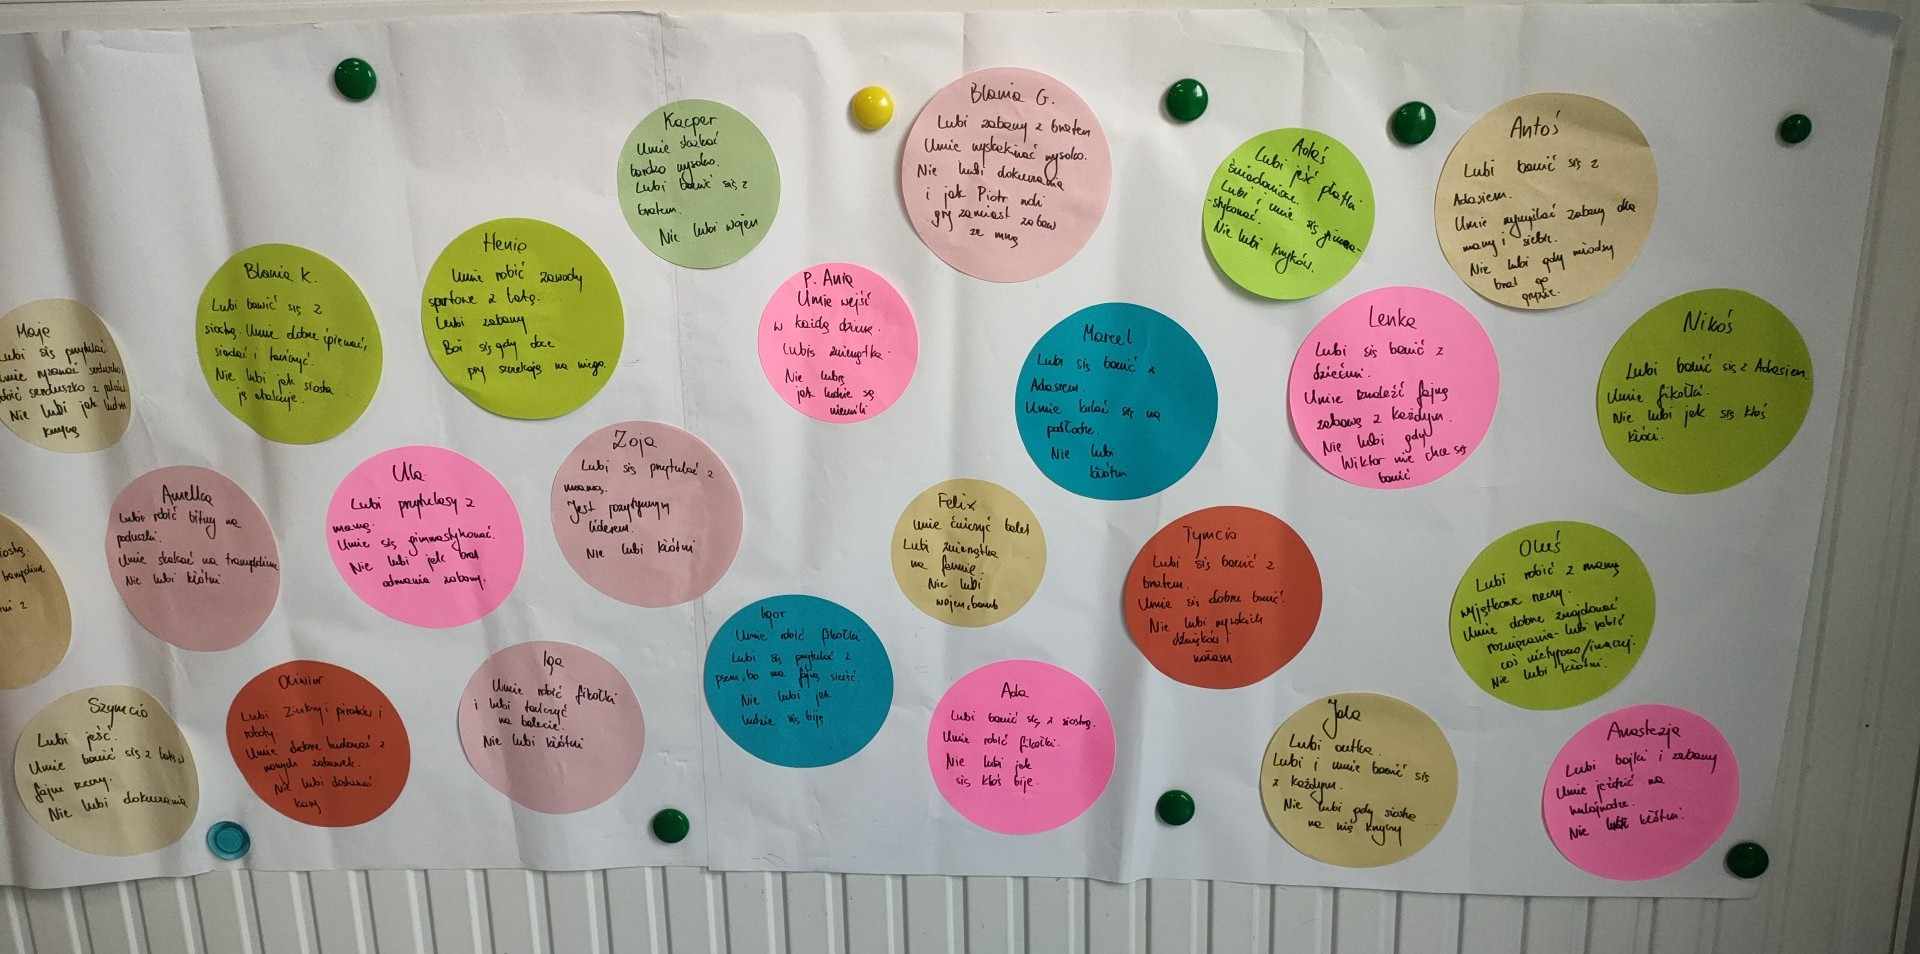 Kacper
Umie skakać
bardzo wysoko.
Lubi bawić się z
bratem.
Nie lubi wojen
Blania G.
Lubi zabawy z bratem
Umie wyskakiwać wysoko.
Nie lubi dokuczania
i jak Piotr robi
gry zamiast zabaw
ze mną
Adaś
Lubi jeść płatki
śniadaniowe.
Lubi i umie się gimna-
-stykować.
Nie lubi krzyków.
Antoś
Lubi bawić się z
Adasiem.
Umie wymyślać zabawy dla
mamy i siebie.
Nie lubi gdy młodszy
brat go
gryzie.
Maja
Lubi się przytulać
Umie rysować serduszko,
robić serduszko z palców
Nie lubi jak ludzie
krzyczą
Blania K.
Lubi bawić się z
siostrą. Umie dobrze śpiewać,
siadać i tańczyć.
Nie lubi jak siostra
ją atakuje.
Henio
Umie robić zawody
sportowe z tatą.
Lubi zabawy
Boi się gdy obce
psy szczekają na niego.
P. Ania
Umie wejść
w każdą dziurę.
Lubię zwierzątka.
Nie lubię
jak ludzie są
niemili
Marcel
Lubi się bawić z
Adasiem.
Umie bujać się na
podłodze.
Nie lubi
kłótni
Lenka
Lubi się bawić z
dziećmi.
Umie znaleźć fajną
zabawę z każdym.
Nie lubi gdy
Wiktor nie chce się
bawić
Nikoś
Lubi bawić się z Adasiem
Umie fikołki.
Nie lubi jak się ktoś
kłóci.
siostrą.
trampolinie
z
Amelka
Lubi robić bitwy na
poduszki.
Umie skakać na trampolinie
Nie lubi kłótni
Ula
Lubi przytulasy z
mamą.
Umie się gimnastykować.
Nie lubi jak brat
odmawia zabawy.
Zoja
Lubi się przytulać z
mamą.
Jest pozytywnym
liderem.
Nie lubi kłótni
Felix
Umie ćwiczyć balet
Lubi zwierzątka
na farmie.
Nie lubi
wojen, bomb
Tymcio
Lubi się bawić z
bratem.
Umie się dobrze bawić.
Nie lubi wysokich
dźwięków i
hałasu
Oluś
Lubi robić z mamą
wyjątkowe rzeczy.
Umie dobrze znajdować
rozwiązania - lubi robić
coś nietypowo/inaczej.
Nie lubi kłótni.
Szymcio
Lubi jeść.
Umie bawić się z tatą w
fajne rzeczy.
Nie lubi dokuczania
Oliwier
Lubi i piratów i
roboty
Umie dobrze budować z
nowych zabawek.
Nie lubi dostawać
kary
Iga
Umie robić fikołki
i lubi tańczyć
na balecie.
Nie lubi kłótni
Igor
Umie robić fikołki.
Lubi się przytulać z
psem, bo ma fajną sierść.
Nie lubi jak
ludzie się biją
Ada
Lubi bawić się z siostrą.
Umie robić fikołki.
Nie lubi jak
się ktoś bije.
Lubi autka.
Lubi i umie bawić się
z każdym.
Nie lubi gdy siostra
na nią krzyczy
Anastezja
Lubi bajki i zabawy
Umie jeździć na
hulajnodze.
Nie lubi kłótni.